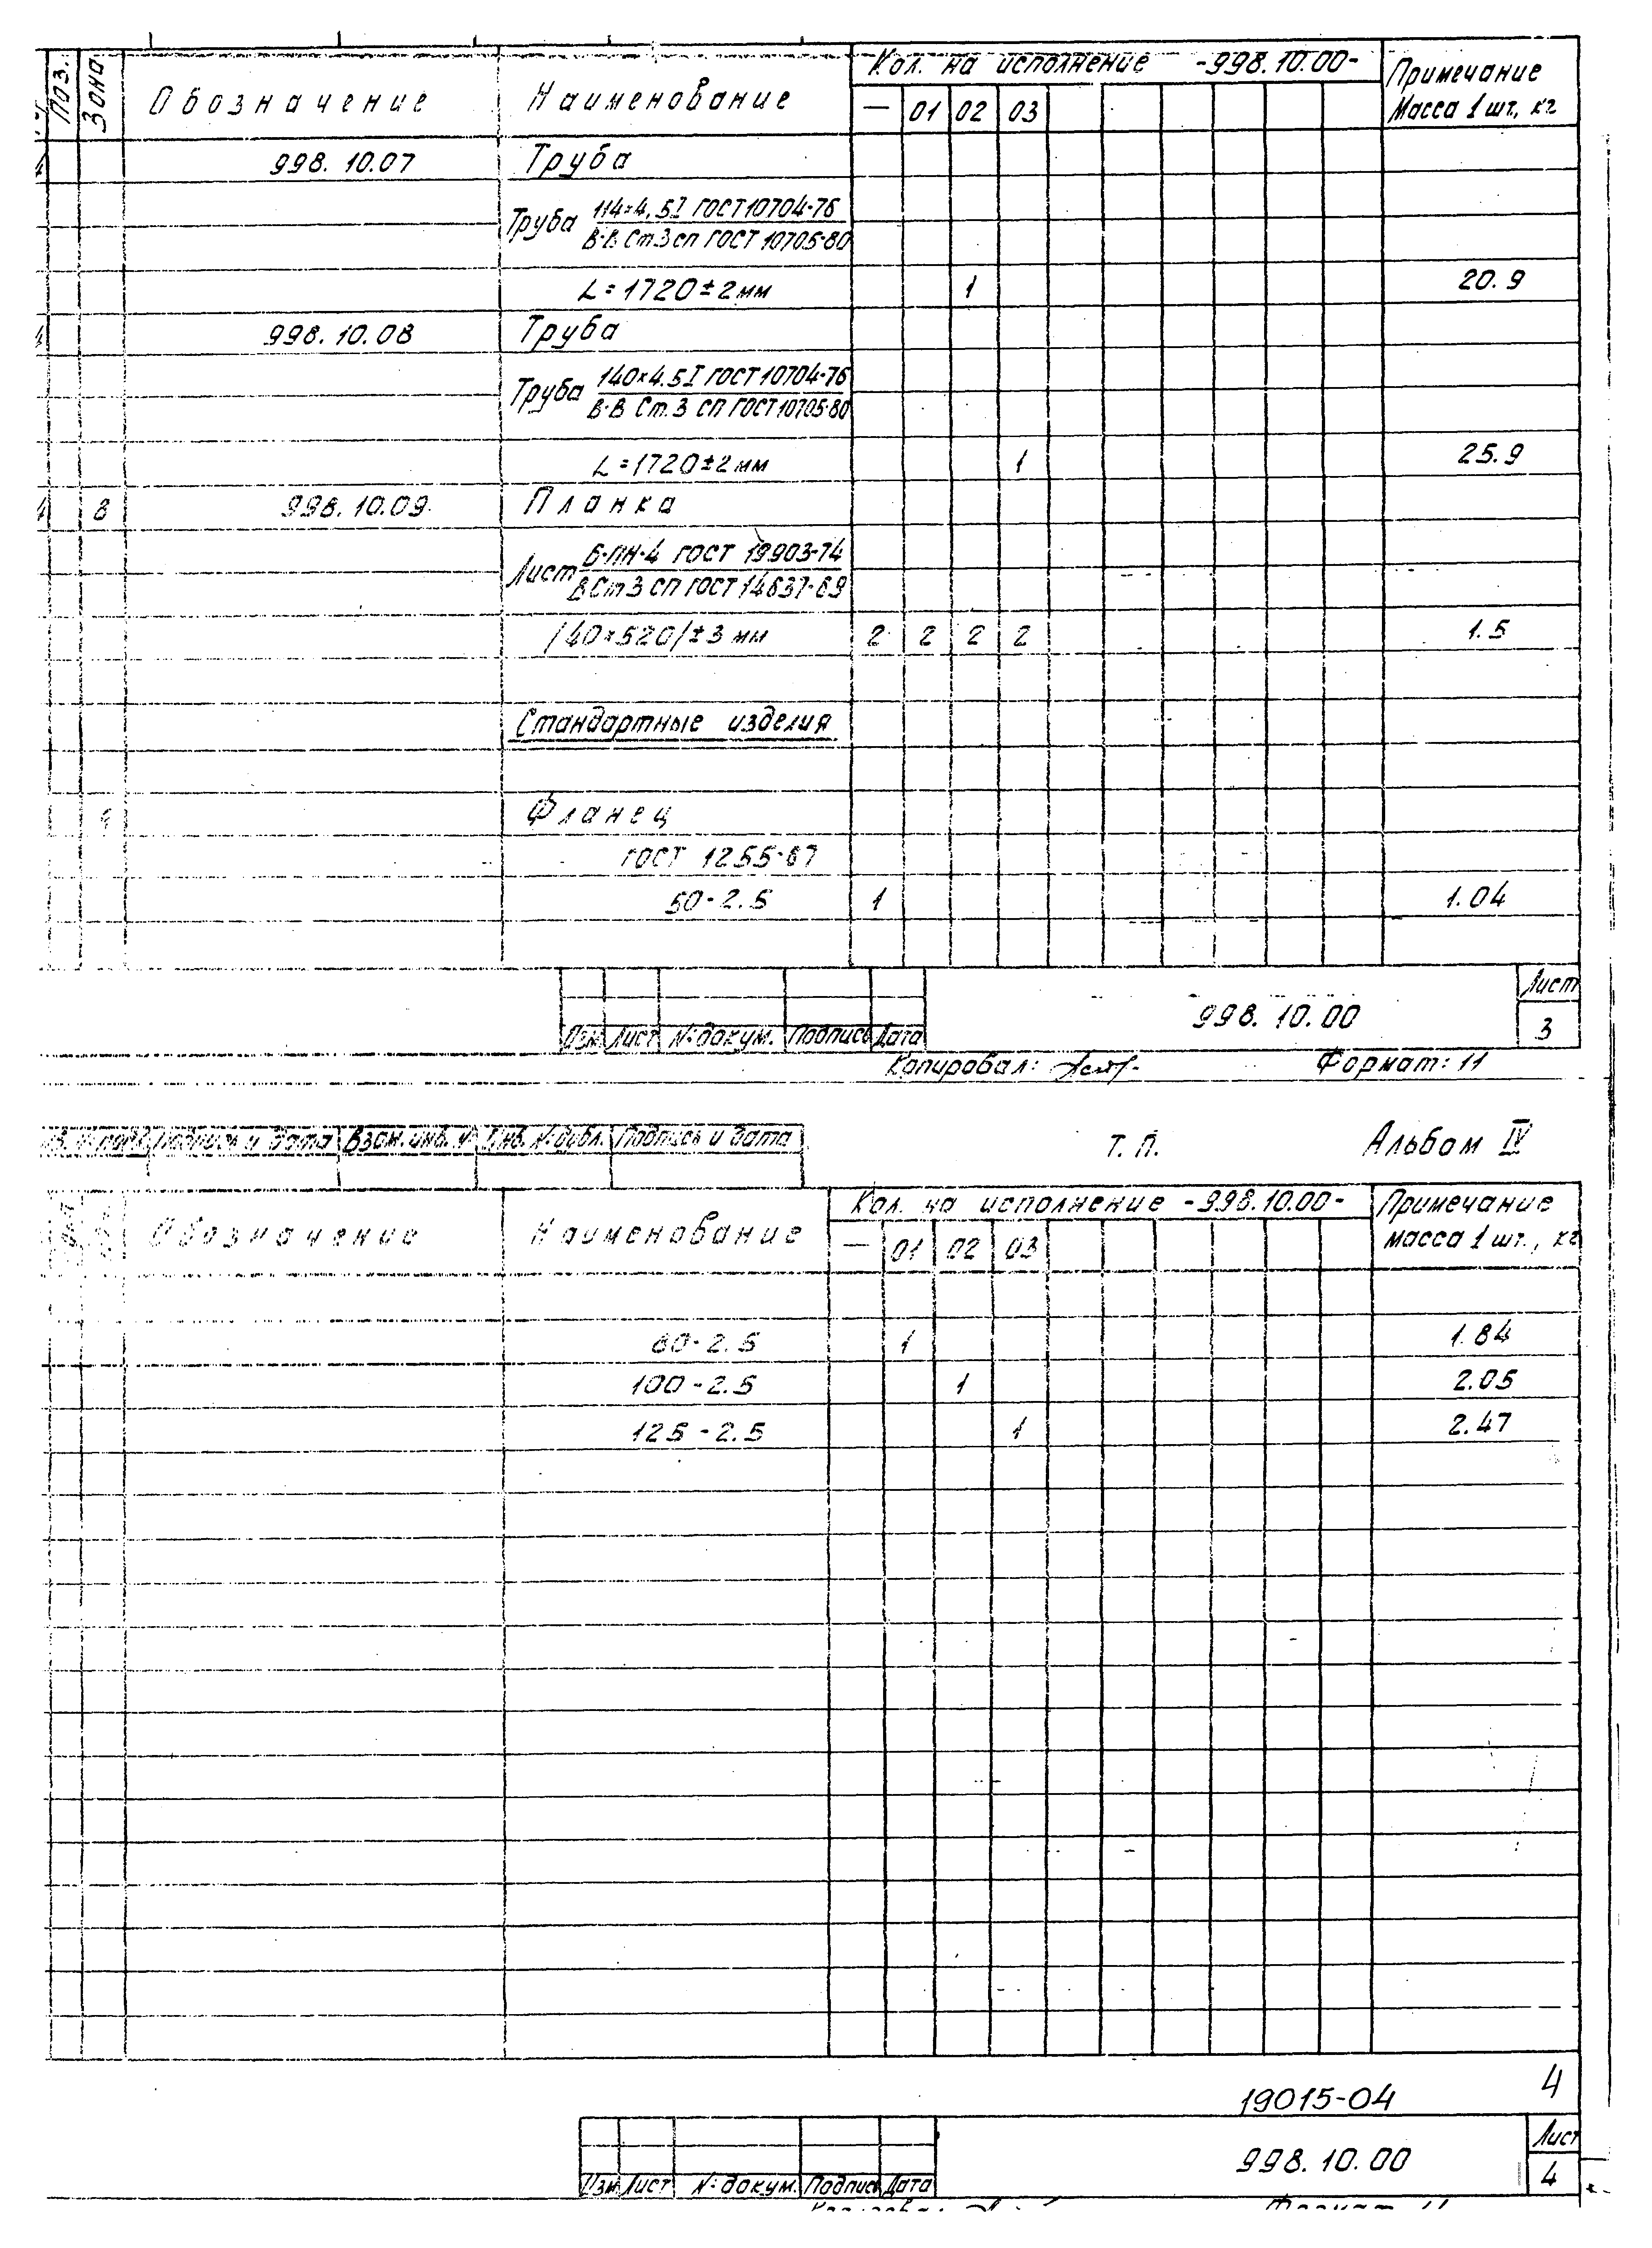 Поз. Зона Обозначение Наименование Кол. на исполнение -998.10.00- Примечание
Масса 1 шт., кг
— 01 02 03
4 998.10.07 Труба
Труба 114×4,5I ГОСТ 10704-76
В-В Ст3сп ГОСТ 10705-80
L=1720±2мм 1 20.9
4 998.10.08 Труба
Труба 140×4.5I ГОСТ 10704-76
В-В Ст.3 сп ГОСТ 10705-80
L=1720±2мм 1 25.9
4 8 998.10.09 Планка
Лист Б-ПН-4 ГОСТ 19903-74
ВСт3 сп ГОСТ 14637-69
/40×520/±3 мм 2 2 2 2 1.5
Стандартные изделия
9 Фланец
ГОСТ 1255-67
50-2.5 1 1.04
998.10.00 Лист
3
Изм Лист №докум. Подпись Дата
Копировал: Формат: 11
Подпись и дата Взам. инв. № Инв. №дубл. Подпись и дата Т. П. Альбом IV
Обозначение Наименование Кол. на исполнение -998.10.00- Примечание
масса 1 шт., кг
— 01 02 03
80-2.5 1 1.84
100-2.5 1 2.05
125-2.5 1 2.47
19015-04 4
998.10.00 Лист
4
Изм Лист №докум. Подпись Дата